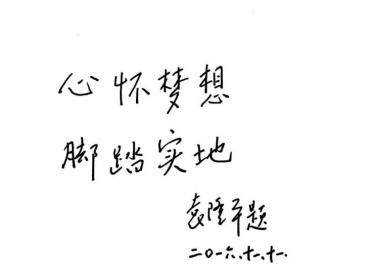 心怀梦想
脚踏实地
袁隆平题
二〇一六.十一.十一.